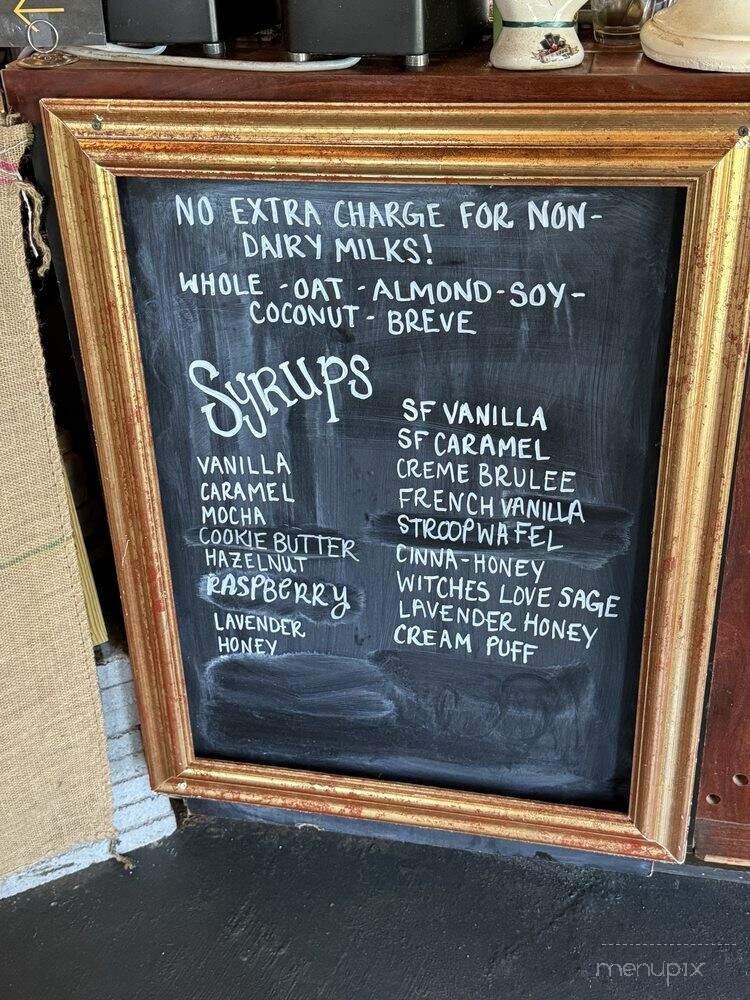 NO EXTRA CHARGE FOR NON-
DAIRY MILKS!
WHOLE - OAT - ALMOND - SOY -
COCONUT - BREVE
SYRUPS
VANILLA
CARAMEL
MOCHA
COOKIE BUTTER
HAZELNUT
RASPBERRY
LAVENDER
HONEY
SF VANILLA
SF CARAMEL
CREME BRULEE
FRENCH VANILLA
STROOPWAFEL
CINNA-HONEY
WITCHES LOVE SAGE
LAVENDER HONEY
CREAM PUFF
menupix